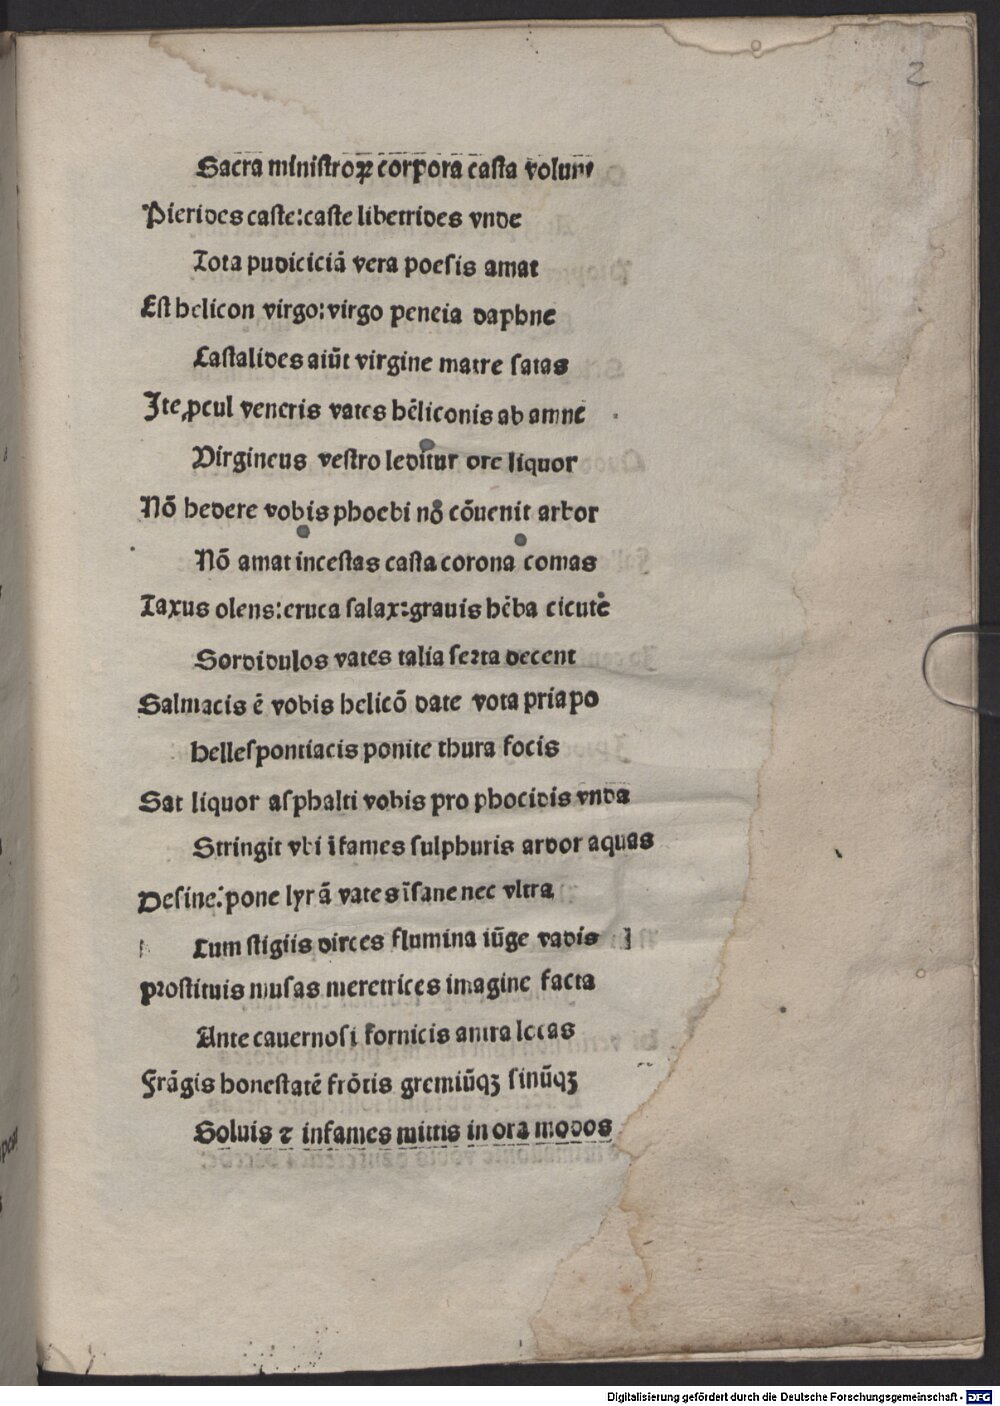 2
Sacra ministroꝝ corpora casta volunt
Pierides caste: caste libetrides vnde
Tota pudiciciā vera poesis amat
Est helicon virgo: virgo peneia daphne
Castalides aiūt virgine matre satas
Ite ꝓcul veneris vates hēliconis ab amne
Virgineus vestro leditur ore liquor
Nō hedere vobis phoebi nō cōuenit arbor
Nō amat incestas casta corona comas
Taxus olens: eruca salax: grauis hēba cicute
Sordidulos vates talia serta decent
Salmacis ē vobis helicō date vota priapo
hellespontiacis ponite thura focis
Sat liquor asphalti vobis pro phocidis vnda
Stringit vbi īfames sulphuris ardor aquas
Desine: pone lyrā vates īsane nec vltra
Cum stigiis dirces flumina iūge vadis
prostituis musas meretrices imagine facta
Ante cauernosi fornicis antra locas
Frāgis honestatē frōtis gremiūqꝫ sinūqꝫ
Soluis ⁊ infames mittis in ora modos
Digitalisierung gefördert durch die Deutsche Forschungsgemeinschaft - DFG